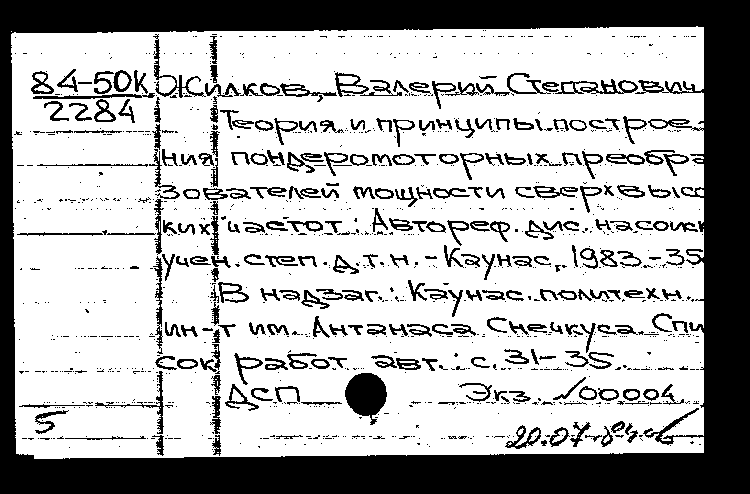 84-50К Жилков, Валерий Степанович
2284
Теория и принципы построе-
ния пондеромоторных преобра
зователей мощности сверхвысо
ких частот: Автореф. дис. на соиск
учен. степ. д.т.н. - Каунас, 1983. - 35
В надзаг.: Каунас. политехн.
ин-т им. Антанаса Снечкуса. Спи
сок работ авт.: с. 31-35.
ДСП Экз. №00004
5
20.07.84